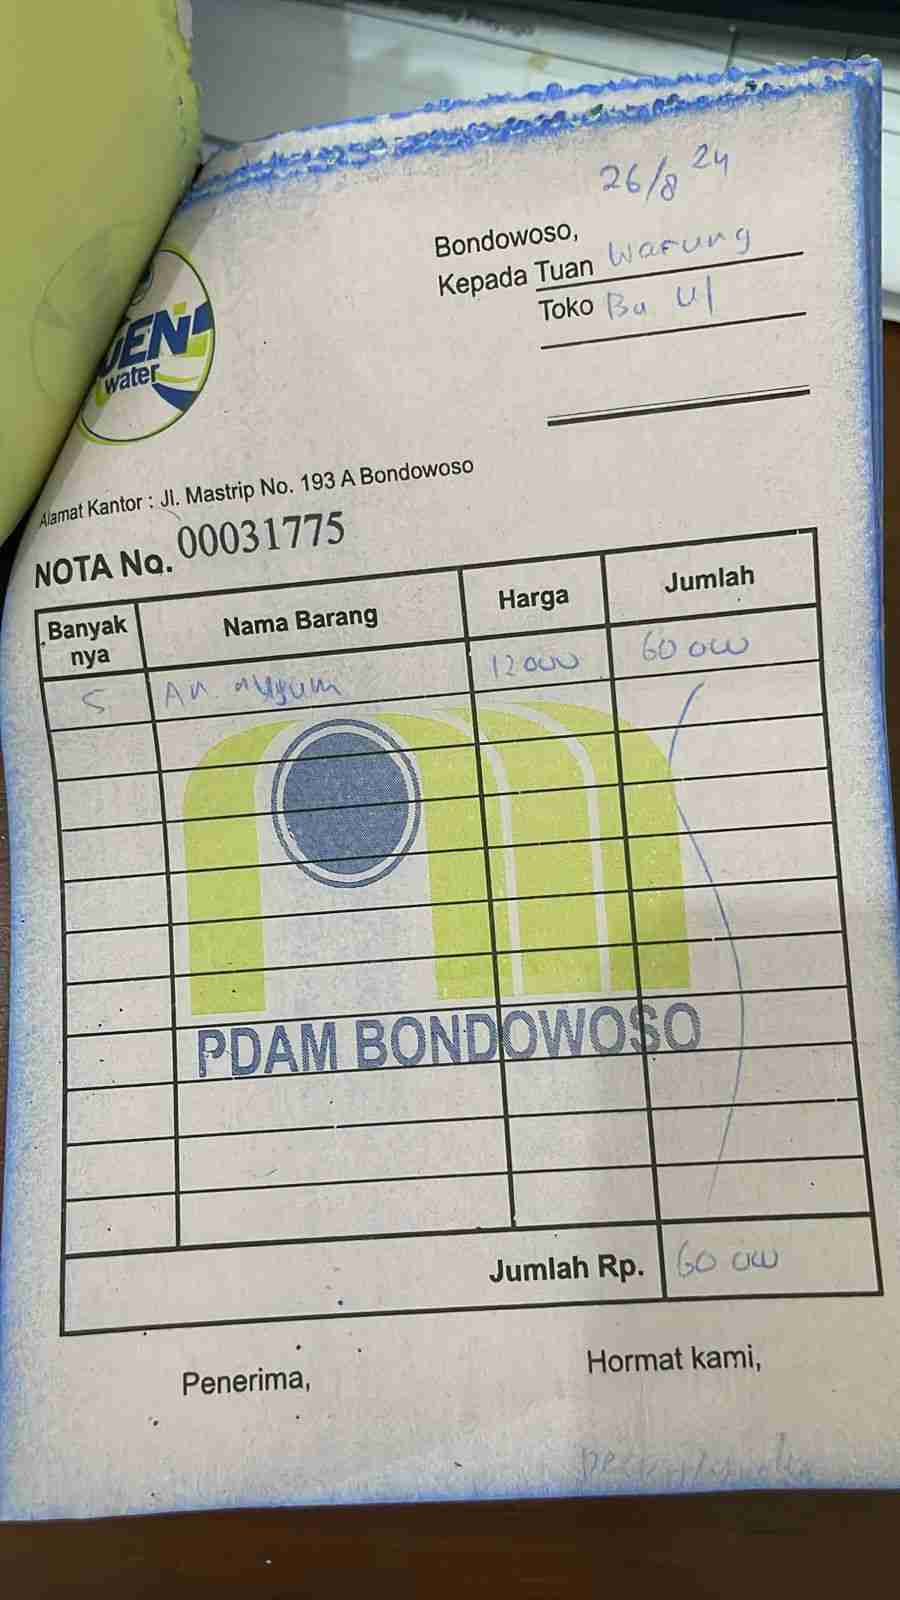 26/8 24
Bondowoso,
Kepada Tuan Warung
Toko Bu Ul
water
Alamat Kantor : Jl. Mastrip No. 193 A Bondowoso
NOTA No. 00031775
Banyak nya Nama Barang Harga Jumlah
5 12000 60 000
PDAM BONDOWOSO
Jumlah Rp. 60 000
Penerima, Hormat kami,